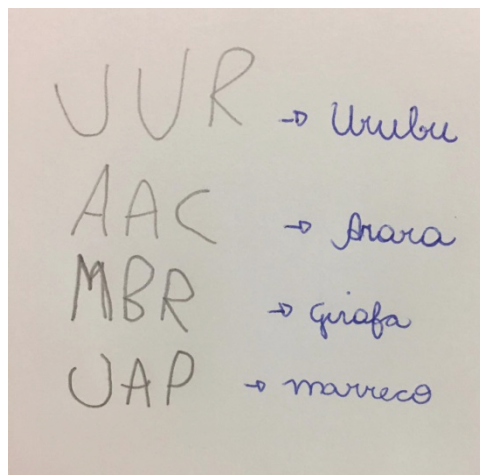 UUR → Urubu
AAC → Arara
MBR → Girafa
UAP → marreco